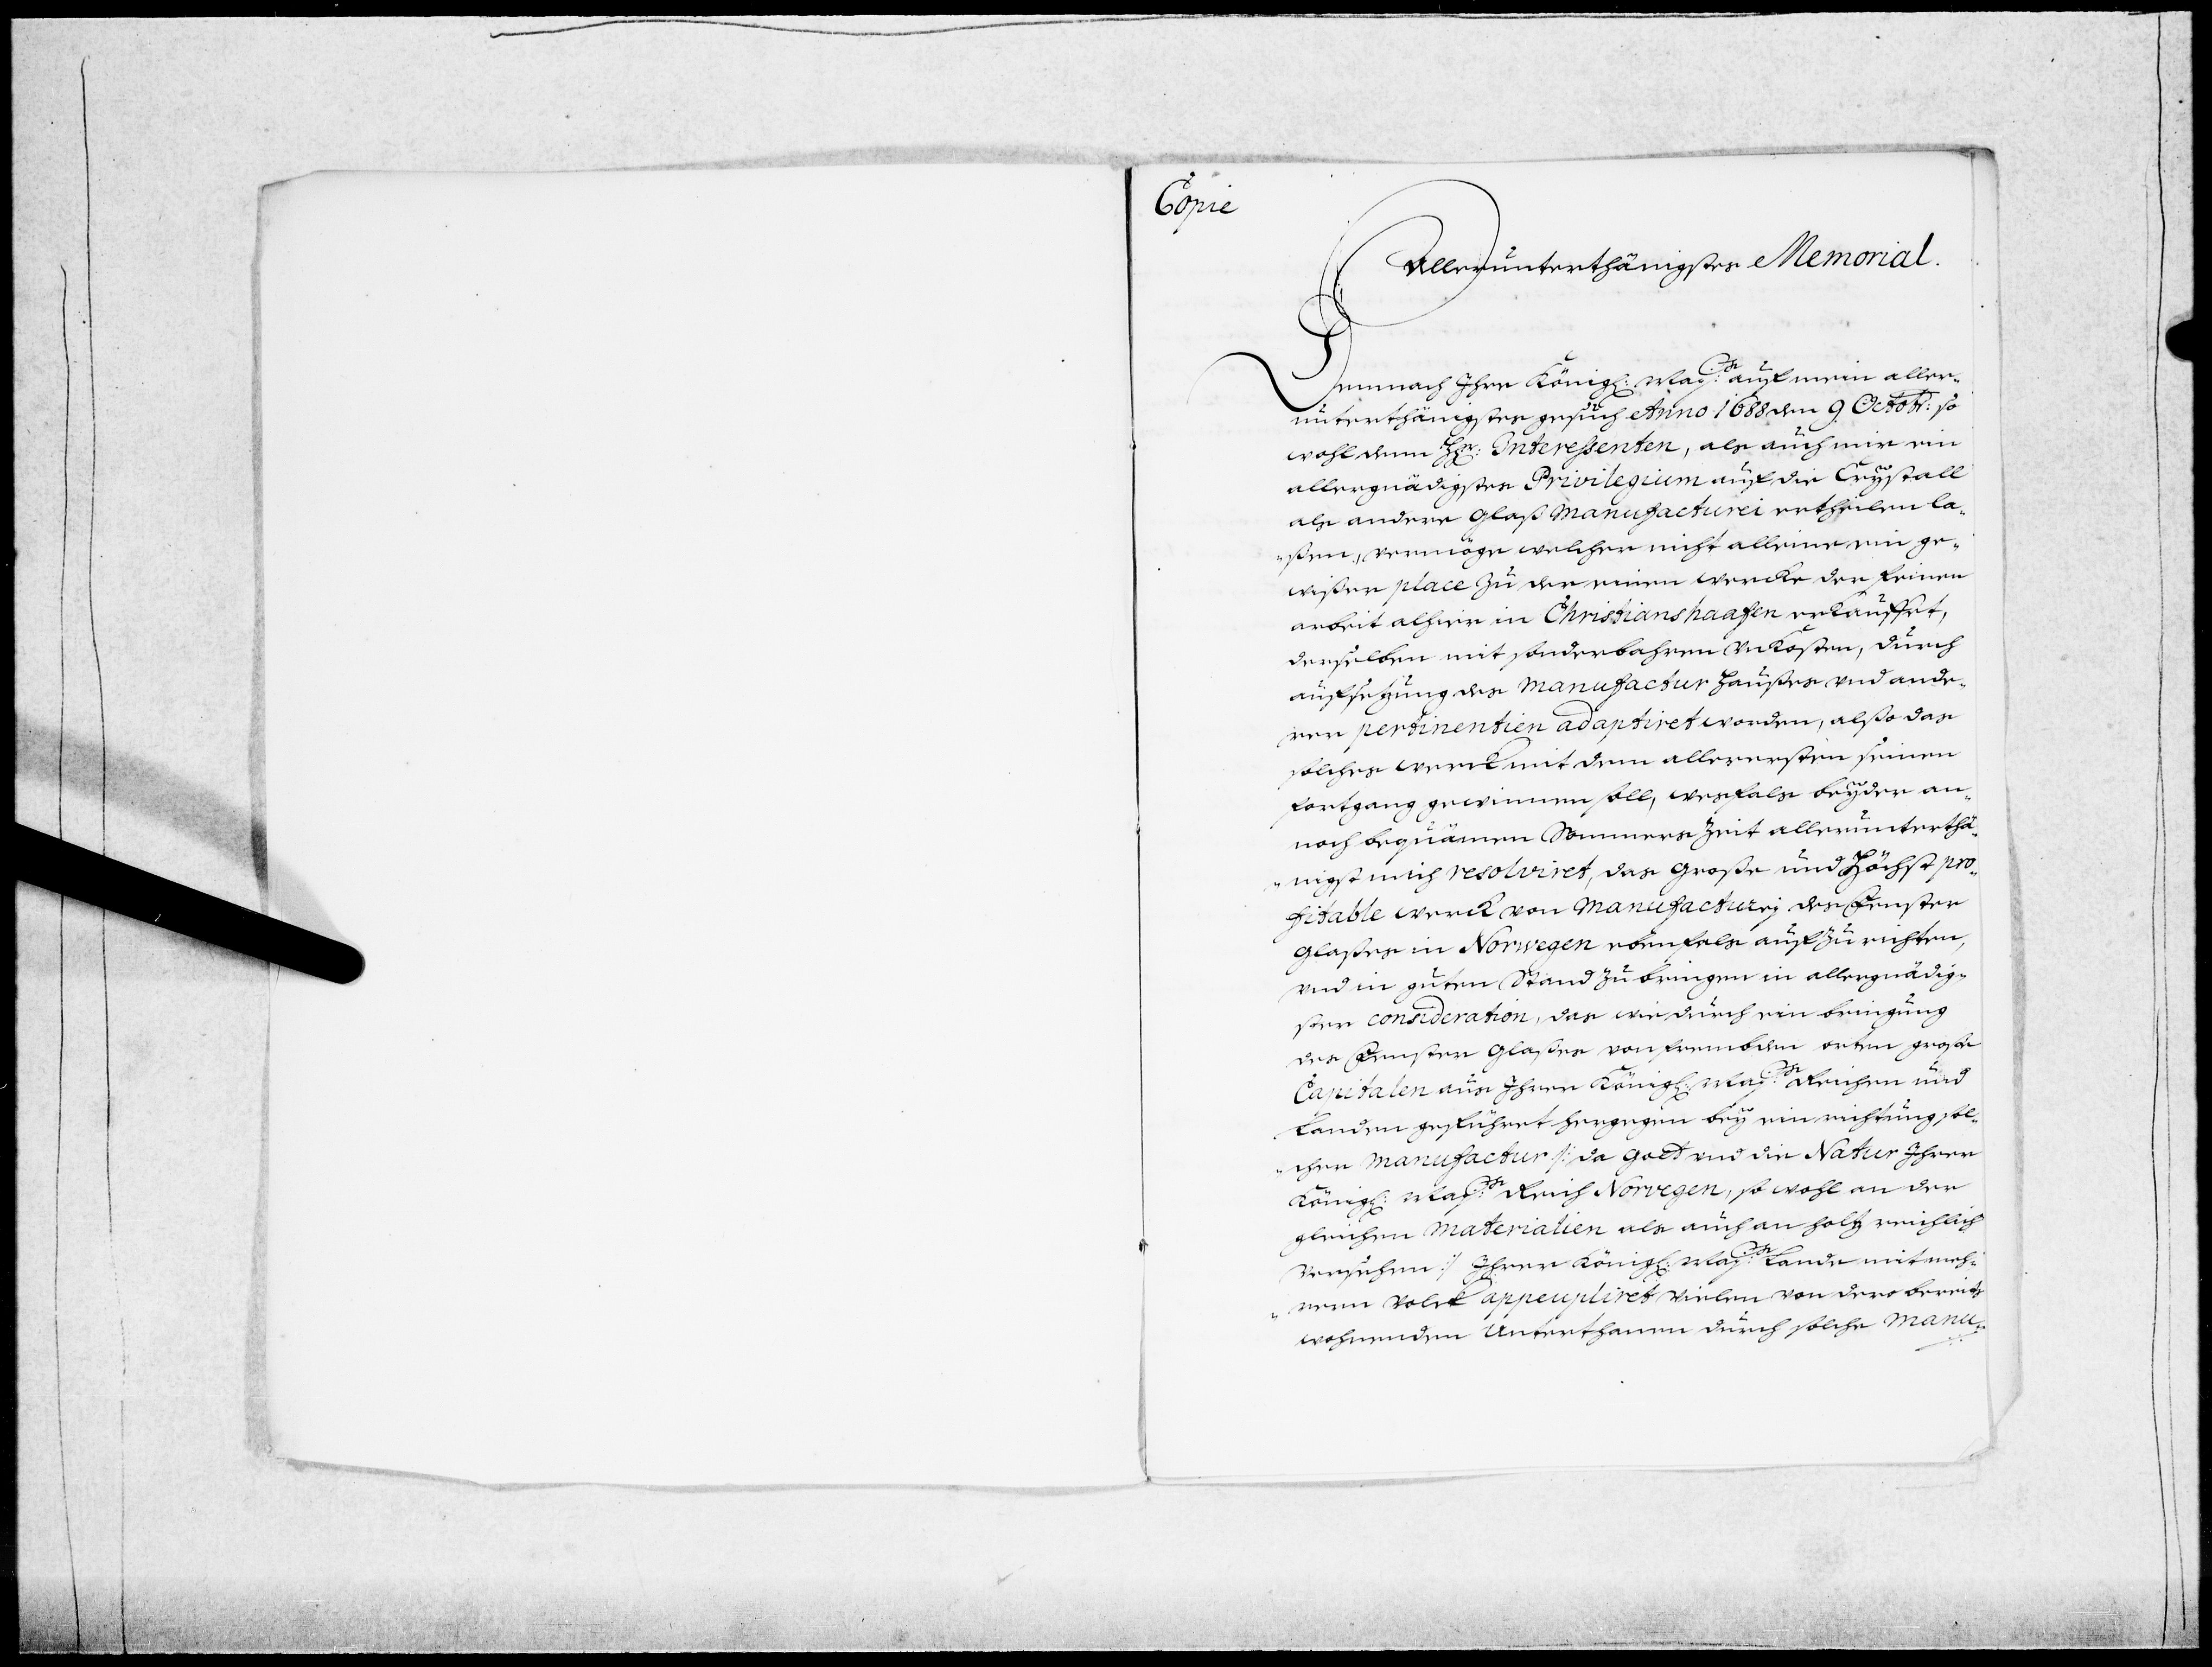 Copie
Allerunterthänigstes Memorial.
Demnach Ihre Königl: May:tt auf mein aller„
unterthänigstes gesuch Anno 1688 den 9 Octobr: so
wohl denn Hh: Interessenten, als auch mir ein
allergnädigstes Privilegium auf die Crÿstall
als andere Glaß Manufacturei ertheilen la„
„ßen, vermöge welcher nicht alleine ein ge„
wißer place zu der einen wercke der feinen
arbeit alhier in Christianshaafen erkauffet,
derselben mit sonderbahren Unkosten, durch
aufsetzung des Manufactur Haußes und ande„
rer pertinentien adaptiret worden, also das
solches werck mit dem allerersten seinen
fortgang gewinnen soll, weßfals beÿder an„
noch bequämen Sommers Zeit allerunterthä„
„nigst mich resolviret, das Große und Höchst pro„
fitable werck von Manufacturej des Fenster
Glaßes in Norwegen ebenfals aufzurichten,
und in guten Stand zu bringen in allergnädig„
ster consideration, das wie durch ein bringung
des Fenster Glaßes von frembden orten große
Capitalen aus Ihrer Königl: May:tt Reichen und
Landen geführet hergegen beÿ ein richtung sol„
„cher Manufactur /: da Gott und die Natur Ihrer
Königl: May:tt Reich Norvegen, so wohl an der
gleichen Materialien als auch an holtz reichlich
versehen :/ Ihrer Königl: May:tt Lande mit meh„
„rern Volck appeupliret vielen von dero bereits
wohnenden Unterthanen durch solche Manu„